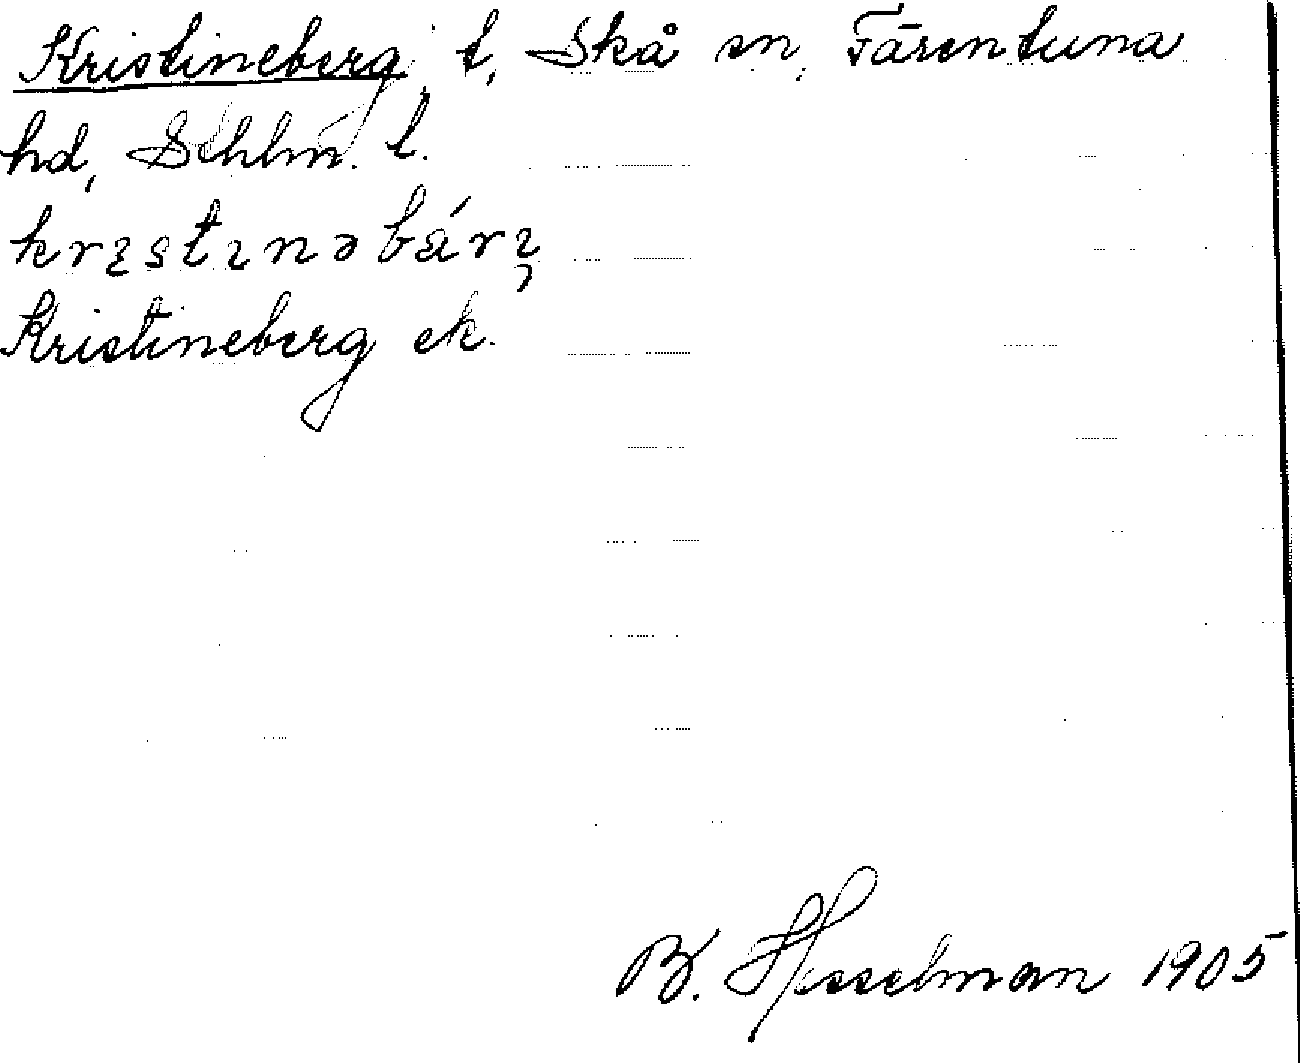 Kristineberg, t, Skå sn, Färentuna
hd, Sthlm. l.
krɪstɪnəbárɪ̨
Kristineberg ek.
B. Hesselman 1905